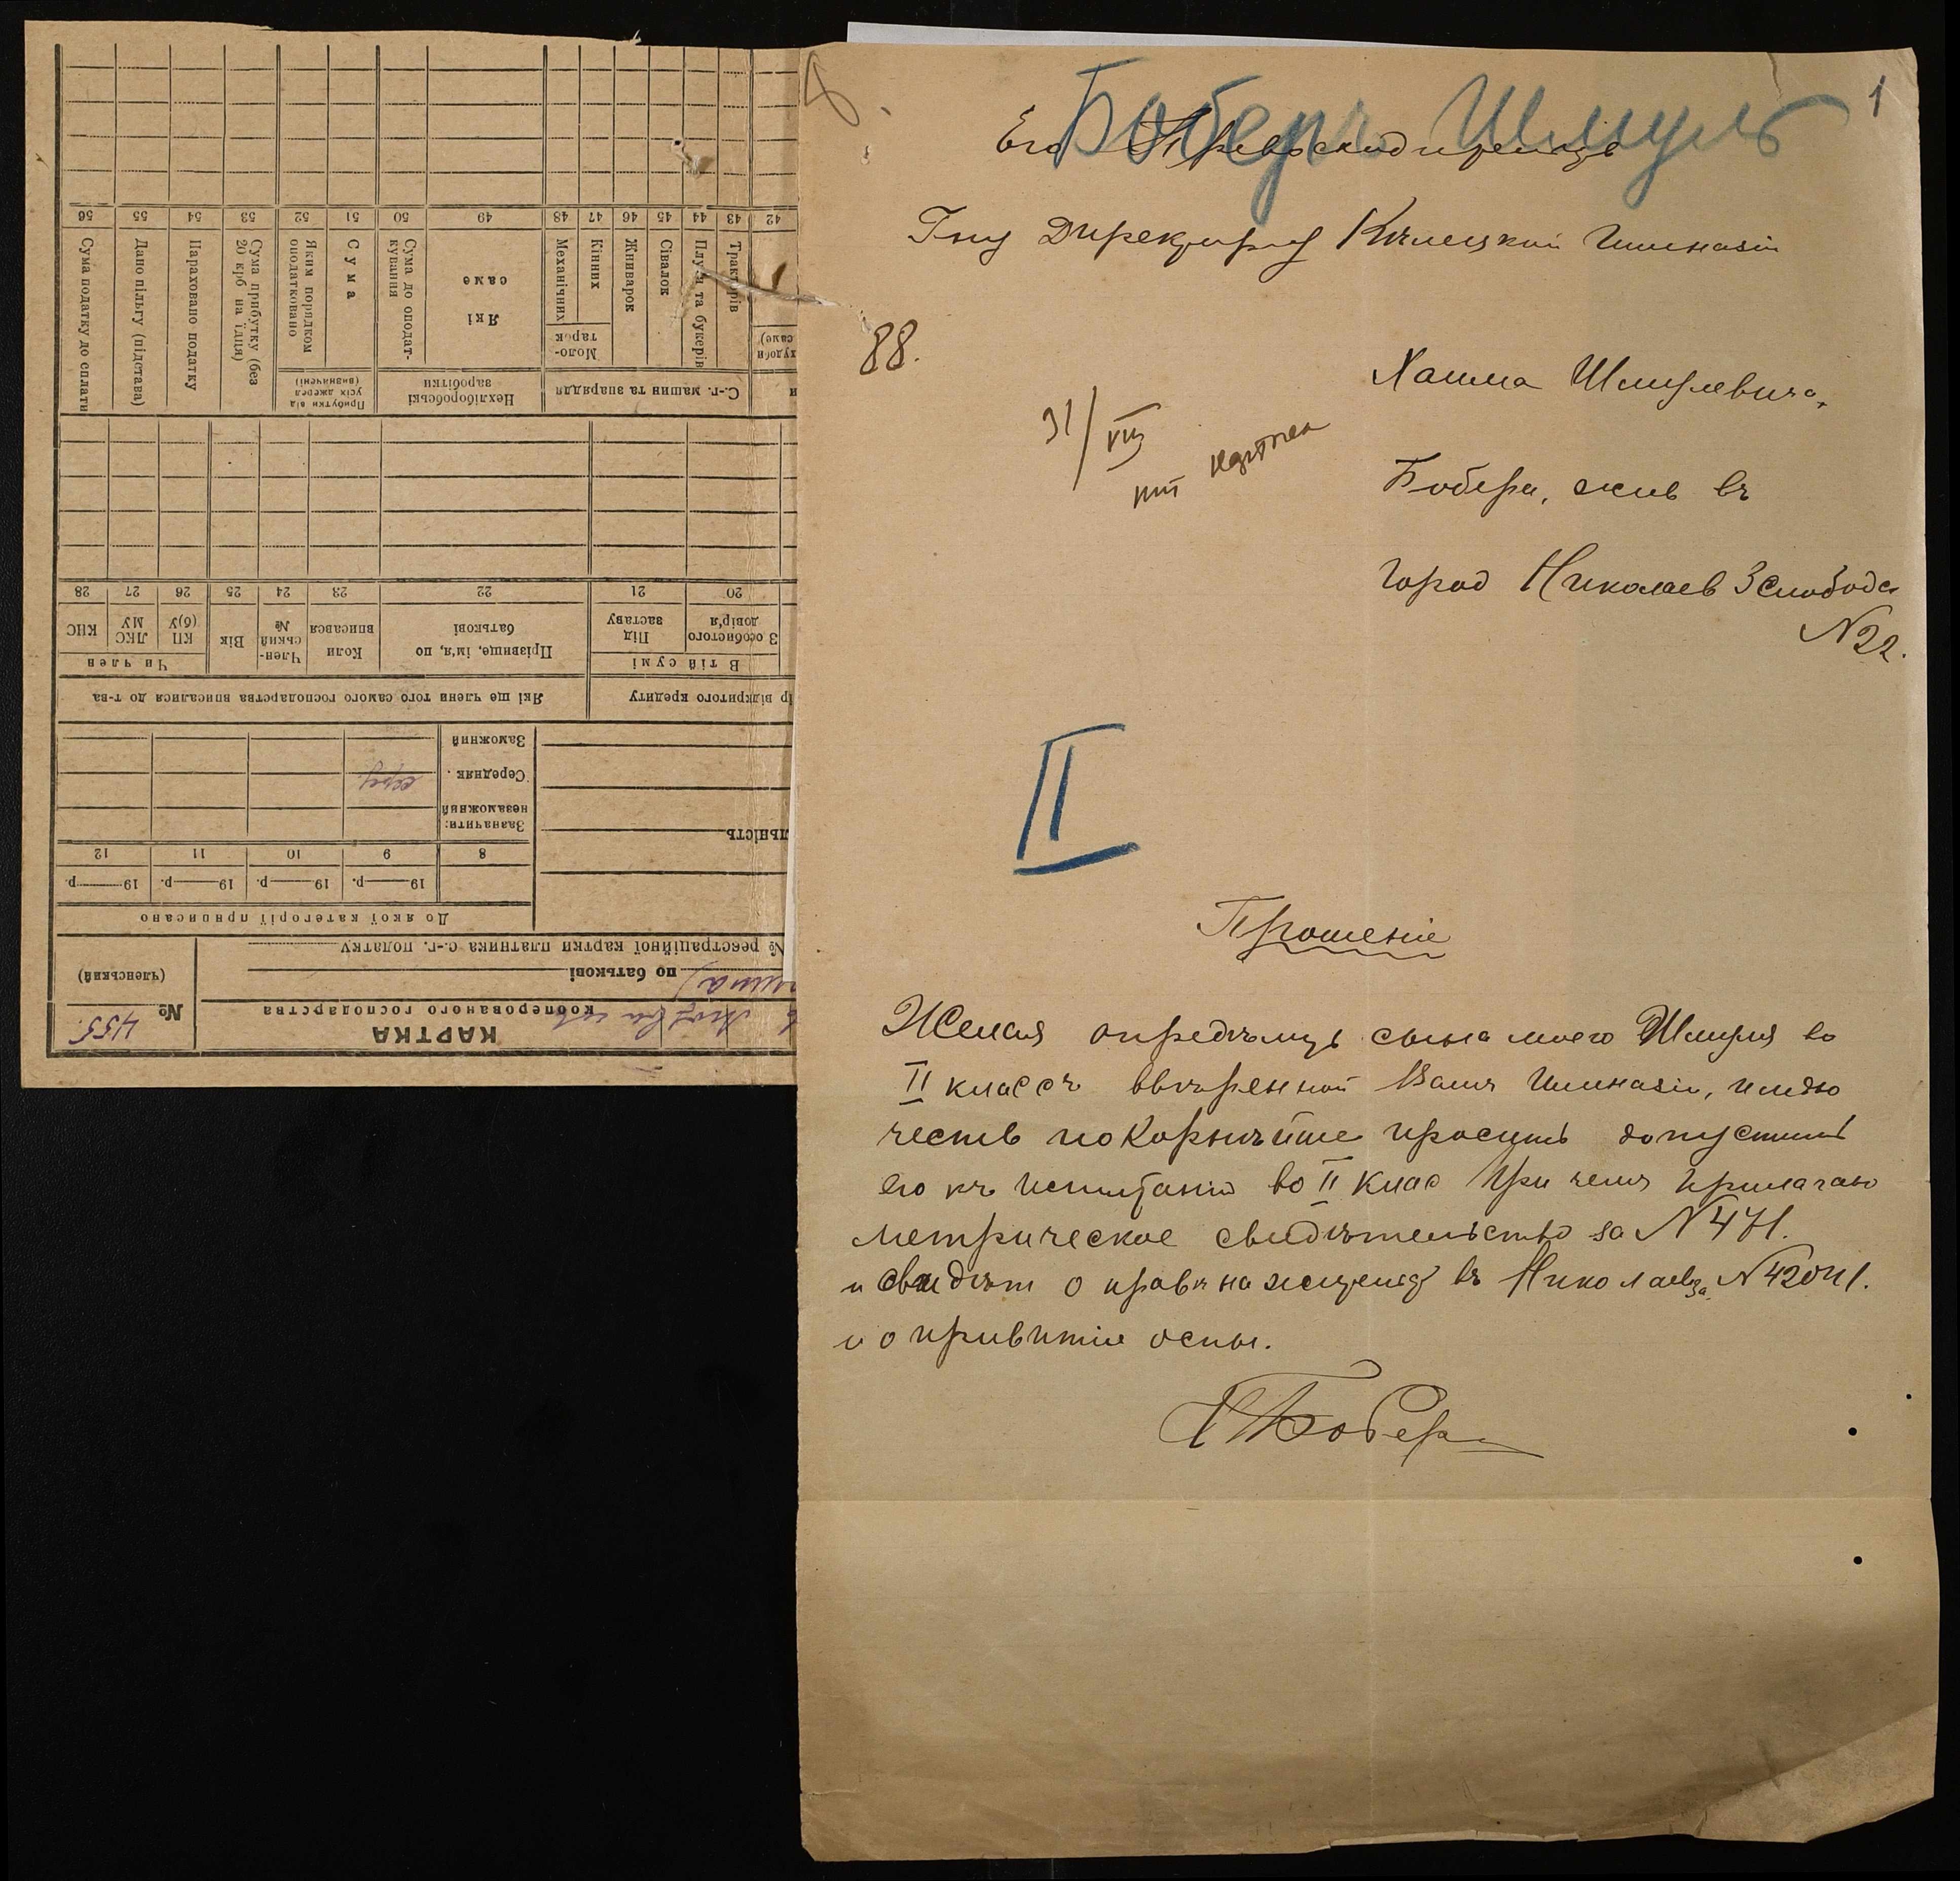 1
Боберъ Шмуль
Его Превосходительст
Гну Директору Кѣлецкой Гимназіи
88.
31/VIII
Хаима Шмулевича
Бобера, жив въ
город Николаев 3 Слободск
N 22.
II
Прошеніе
Желая опредѣлить сына моего Шмуля во
II классъ ввѣренной Вамъ Гимназіи, имѣю
честь покорнѣйше просить допустить
его къ испытанію во II клас При чемъ прилагаю
метрическое свидѣтельство за N 471.
и свидѣт о правѣ на жительс въ Николаевѣ за N 42041.
и о привитіи оспы.
Х Бобер
КАРТКА
кооперованого господарства
№ 455.
(членський)
по батькові
№ реєстраційної картки платника с.-г. податку
До якої категорії приписано
19 р. 19 р. 19 р. 19 р.
8 9 10 11 12
Зазначити:
незаможний
Середняк
Заможний
льність
ір відкритого кредиту
Які ще члени того самого господарства вписалися до т-ва
В тій сумі
Чи член
З особистого довір'я
Під заставу
Прізвище, ім'я, по батькові
Коли вписався
Член-ський №
Вік
КП (б)У
ЛКСМУ
КНС
20 21 22 23 24 25 26 27 28
С.-г. машин та знаряддя
Нехліборобські заробітки
Прибутки від усіх джерел (визначені)
Тракторів
Плугів та букерів
Сівалок
Жниварок
Моло-тарок
Кінних
Механічних
Які саме
Сума до оподат-кування
Сума
Яким порядком оподатковано
Сума прибутку (без 20 крб на їдця)
Нараховано податку
Дано пільгу (підстава)
Сума податку до сплати
42 43 44 45 46 47 48 49 50 51 52 53 54 55 56